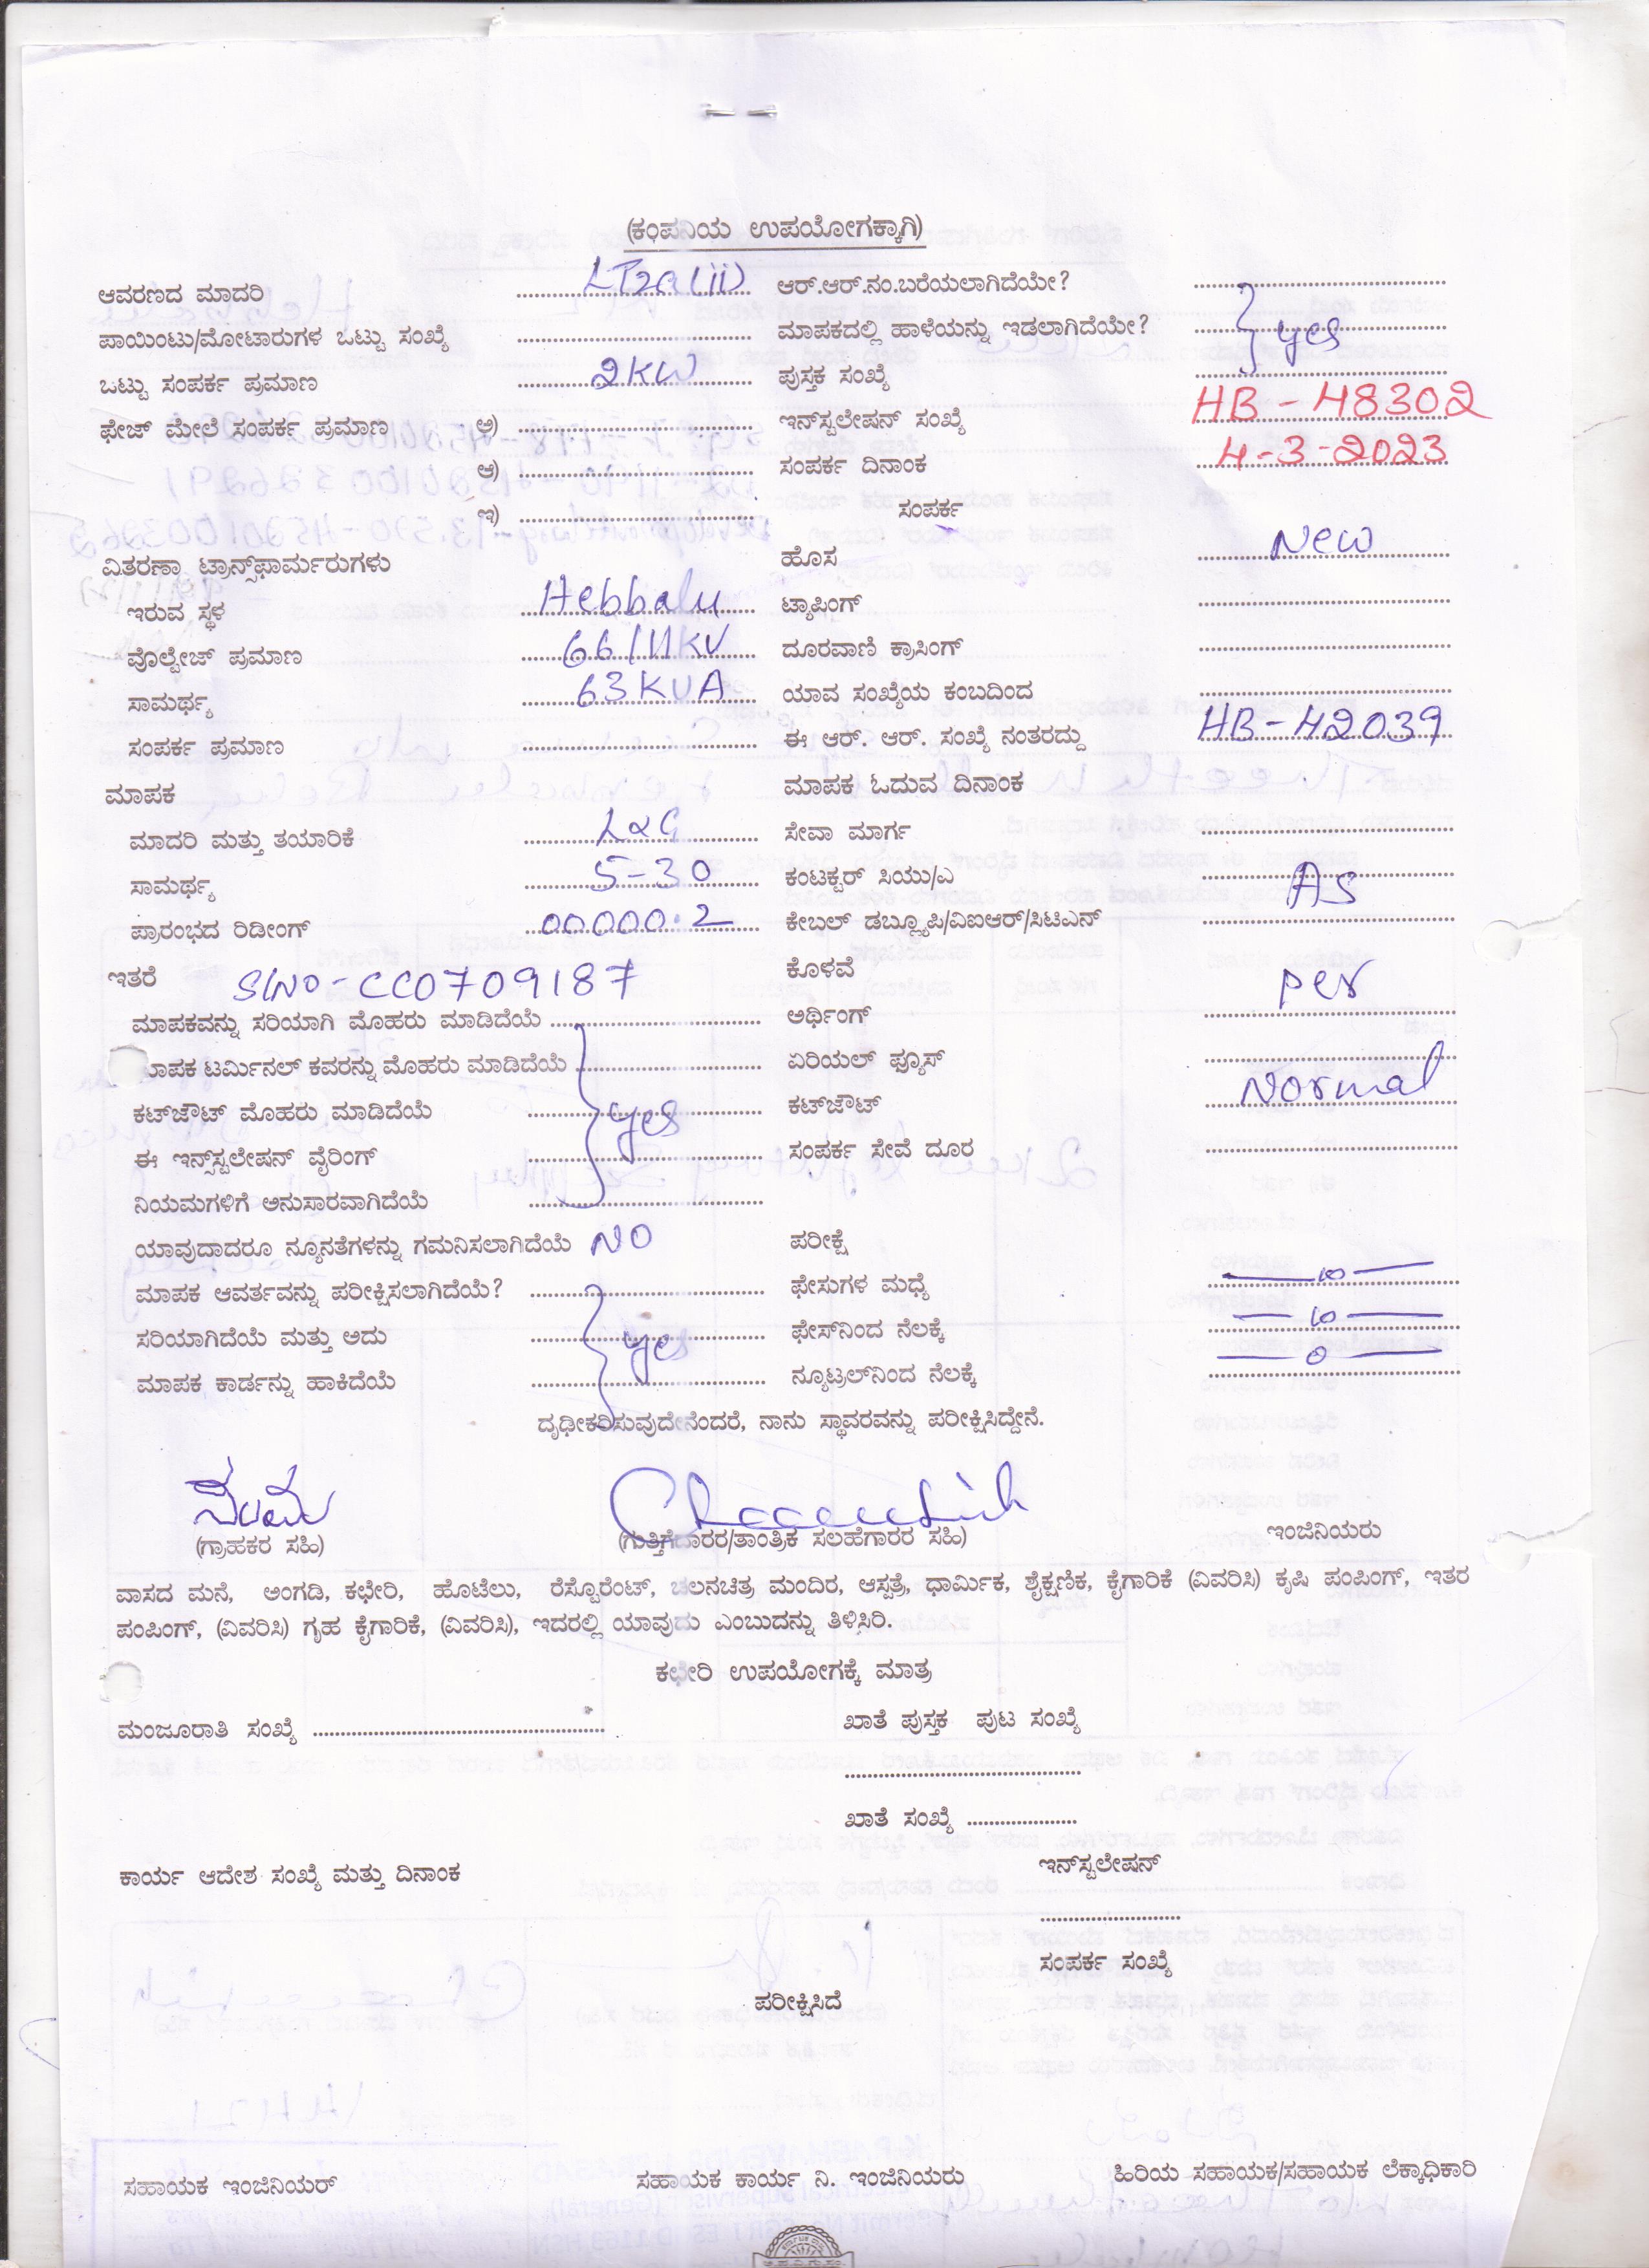 (ಕಂಪನಿಯ ಉಪಯೋಗಕ್ಕಾಗಿ)
ಆವರಣದ ಮಾದರಿ LT2a(ii) ಆರ್.ಆರ್.ನಂ.ಬರೆಯಲಾಗಿದೆಯೇ?
ಪಾಯಿಂಟು/ಮೋಟಾರುಗಳ ಒಟ್ಟು ಸಂಖ್ಯೆ ಮಾಪಕದಲ್ಲಿ ಹಾಳೆಯನ್ನು ಇಡಲಾಗಿದೆಯೇ? yes
ಒಟ್ಟು ಸಂಪರ್ಕ ಪ್ರಮಾಣ 2KW ಪುಸ್ತಕ ಸಂಖ್ಯೆ
ಫೇಜ್ ಮೇಲೆ ಸಂಪರ್ಕ ಪ್ರಮಾಣ ಅ) ಇನ್‌ಸ್ಟಲೇಷನ್ ಸಂಖ್ಯೆ HB-48302
ಆ) ಸಂಪರ್ಕ ದಿನಾಂಕ 4-3-2023
ಇ) ಸಂಪರ್ಕ
ವಿತರಣಾ ಟ್ರಾನ್ಸ್‌ಫಾರ್ಮರುಗಳು ಹೊಸ New
ಇರುವ ಸ್ಥಳ Hebbalu ಟ್ಯಾಪಿಂಗ್
ವೊಲ್ಟೇಜ್ ಪ್ರಮಾಣ 66/11KV ದೂರವಾಣಿ ಕ್ರಾಸಿಂಗ್
ಸಾಮರ್ಥ್ಯ 63KVA ಯಾವ ಸಂಖ್ಯೆಯ ಕಂಬದಿಂದ
ಸಂಪರ್ಕ ಪ್ರಮಾಣ ಈ ಆರ್. ಆರ್. ಸಂಖ್ಯೆ ನಂತರದ್ದು HB-42039
ಮಾಪಕ ಮಾಪಕ ಓದುವ ದಿನಾಂಕ
ಮಾದರಿ ಮತ್ತು ತಯಾರಿಕೆ L&G ಸೇವಾ ಮಾರ್ಗ
ಸಾಮರ್ಥ್ಯ 5-30 ಕಂಟಕ್ಟರ್ ಸಿಯು/ಎ
ಪ್ರಾರಂಭದ ರಿಡೀಂಗ್ 00000.2 ಕೇಬಲ್ ಡಬ್ಲ್ಯೂಪಿ/ವಿಐಆರ್/ಸಿಟಿಎನ್ As
ಇತರೆ Slno-CC0709187 ಕೊಳವೆ
ಮಾಪಕವನ್ನು ಸರಿಯಾಗಿ ಮೊಹರು ಮಾಡಿದೆಯೆ ಅರ್ಥಿಂಗ್ per
ಮಾಪಕ ಟರ್ಮಿನಲ್ ಕವರನ್ನು ಮೊಹರು ಮಾಡಿದೆಯೆ ಏರಿಯಲ್ ಫ್ಯೂಸ್
ಕಟ್‌ಜೌಟ್ ಮೊಹರು ಮಾಡಿದೆಯೆ yes ಕಟ್‌ಜೌಟ್ Normal
ಈ ಇನ್ಸ್‌ಸ್ಟಲೇಷನ್ ವೈರಿಂಗ್ ಸಂಪರ್ಕ ಸೇವೆ ದೂರ
ನಿಯಮಗಳಿಗೆ ಅನುಸಾರವಾಗಿದೆಯೆ
ಯಾವುದಾದರೂ ನ್ಯೂನತೆಗಳನ್ನು ಗಮನಿಸಲಾಗಿದೆಯೆ NO ಪರೀಕ್ಷೆ
ಮಾಪಕ ಆವರ್ತವನ್ನು ಪರೀಕ್ಷಿಸಲಾಗಿದೆಯೆ? ಫೇಸುಗಳ ಮಧ್ಯೆ
ಸರಿಯಾಗಿದೆಯೆ ಮತ್ತು ಅದು yes ಫೇಸ್‌ನಿಂದ ನೆಲಕ್ಕೆ 10
ಮಾಪಕ ಕಾರ್ಡನ್ನು ಹಾಕಿದೆಯೆ ನ್ಯೂಟ್ರಲ್‌ನಿಂದ ನೆಲಕ್ಕೆ 0
ದೃಢೀಕರಿಸುವುದೇನೆಂದರೆ, ನಾನು ಸ್ಥಾವರವನ್ನು ಪರೀಕ್ಷಿಸಿದ್ದೇನೆ.
(ಗ್ರಾಹಕರ ಸಹಿ) (ಗುತ್ತಿಗೆದಾರರ/ತಾಂತ್ರಿಕ ಸಲಹೆಗಾರರ ಸಹಿ) ಇಂಜಿನಿಯರು
ವಾಸದ ಮನೆ, ಅಂಗಡಿ, ಕಛೇರಿ, ಹೊಟೆಲು, ರೆಸ್ಟೊರೆಂಟ್, ಚಲನಚಿತ್ರ ಮಂದಿರ, ಆಸ್ಪತ್ರೆ, ಧಾರ್ಮಿಕ, ಶೈಕ್ಷಣಿಕ, ಕೈಗಾರಿಕೆ (ವಿವರಿಸಿ) ಕೃಷಿ ಪಂಪಿಂಗ್, ಇತರ
ಪಂಪಿಂಗ್, (ವಿವರಿಸಿ) ಗೃಹ ಕೈಗಾರಿಕೆ, (ವಿವರಿಸಿ), ಇದರಲ್ಲಿ ಯಾವುದು ಎಂಬುದನ್ನು ತಿಳಿಸಿರಿ.
ಕಛೇರಿ ಉಪಯೋಗಕ್ಕೆ ಮಾತ್ರ
ಮಂಜೂರಾತಿ ಸಂಖ್ಯೆ ಖಾತೆ ಪುಸ್ತಕ ಪುಟ ಸಂಖ್ಯೆ
ಖಾತೆ ಸಂಖ್ಯೆ
ಕಾರ್ಯ ಆದೇಶ ಸಂಖ್ಯೆ ಮತ್ತು ದಿನಾಂಕ ಇನ್‌ಸ್ಟಲೇಷನ್
ಸಂಪರ್ಕ ಸಂಖ್ಯೆ
ಪರೀಕ್ಷಿಸಿದೆ
ಸಹಾಯಕ ಇಂಜಿನಿಯರ್ ಸಹಾಯಕ ಕಾರ್ಯ ನಿ. ಇಂಜಿನಿಯರು ಹಿರಿಯ ಸಹಾಯಕ/ಸಹಾಯಕ ಲೆಕ್ಕಾಧಿಕಾರಿ